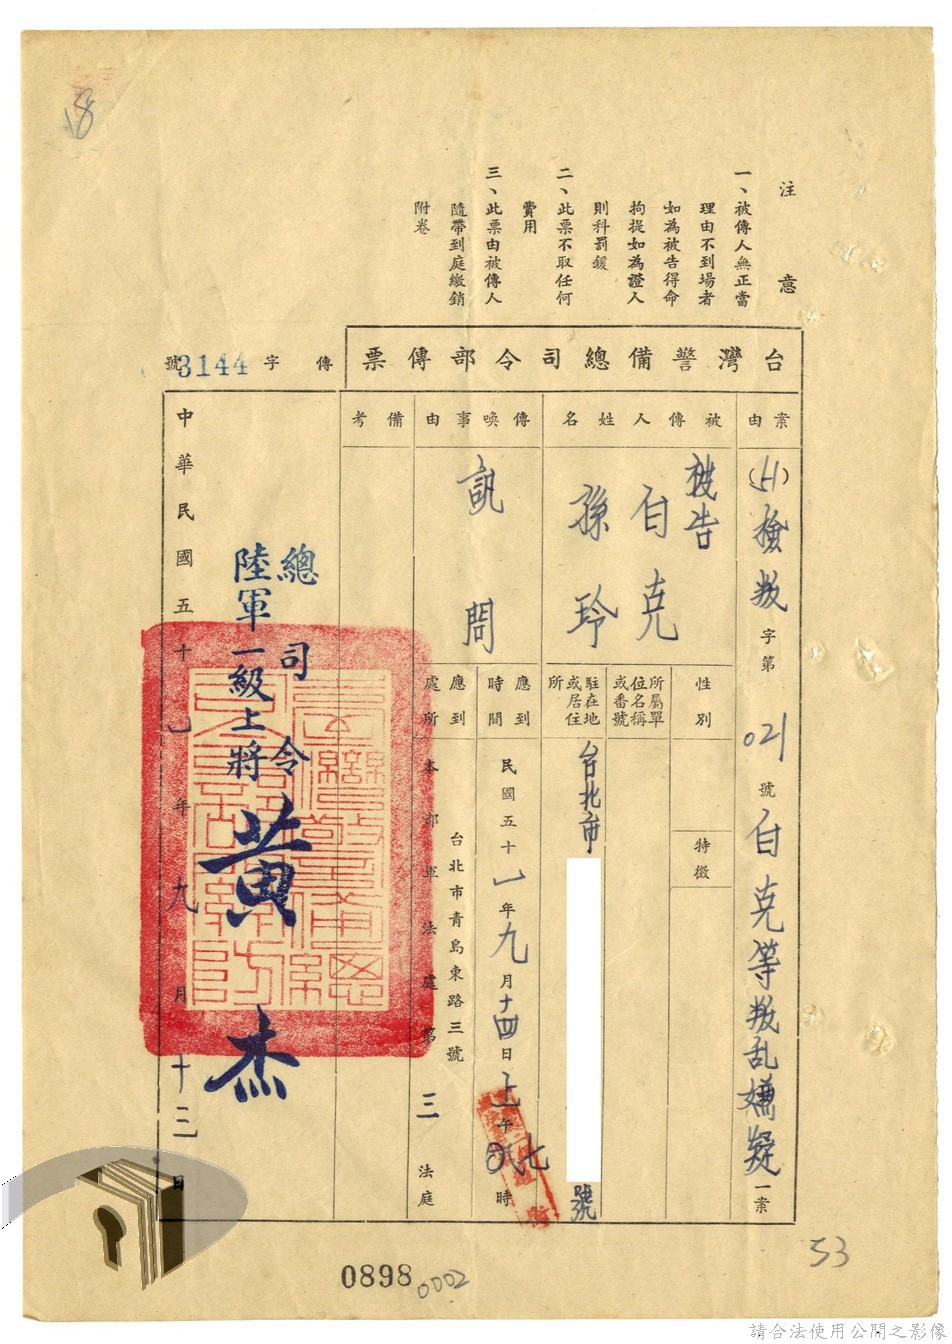 注意
一、被傳人無正當
理由不到場者
如為被告得命
拘提如為證人
則科罰鍰
二、此票不取任何
費用
三、此票由被傳人
隨帶到庭繳銷
附卷
台灣警備總司令部傳票
傳字
3144號
案由
檢叛字第021號白克等叛乱嫌疑一案
被傳人姓名
被告
白克
孫玲
性別
特徵
所屬單
位名稱
或番號
駐在地
或居住
所
台北市
號
傳喚事由
訊問
應到
時間
民國五十一年九月十四日上午
時
應到
處所
台北市青島東路三號
本部軍法處第三法庭
備考
總司令
陸軍一級上將
黃杰
中華民國五十一年九月十三日
18
53
0898
0002
請合法使用公開之影像